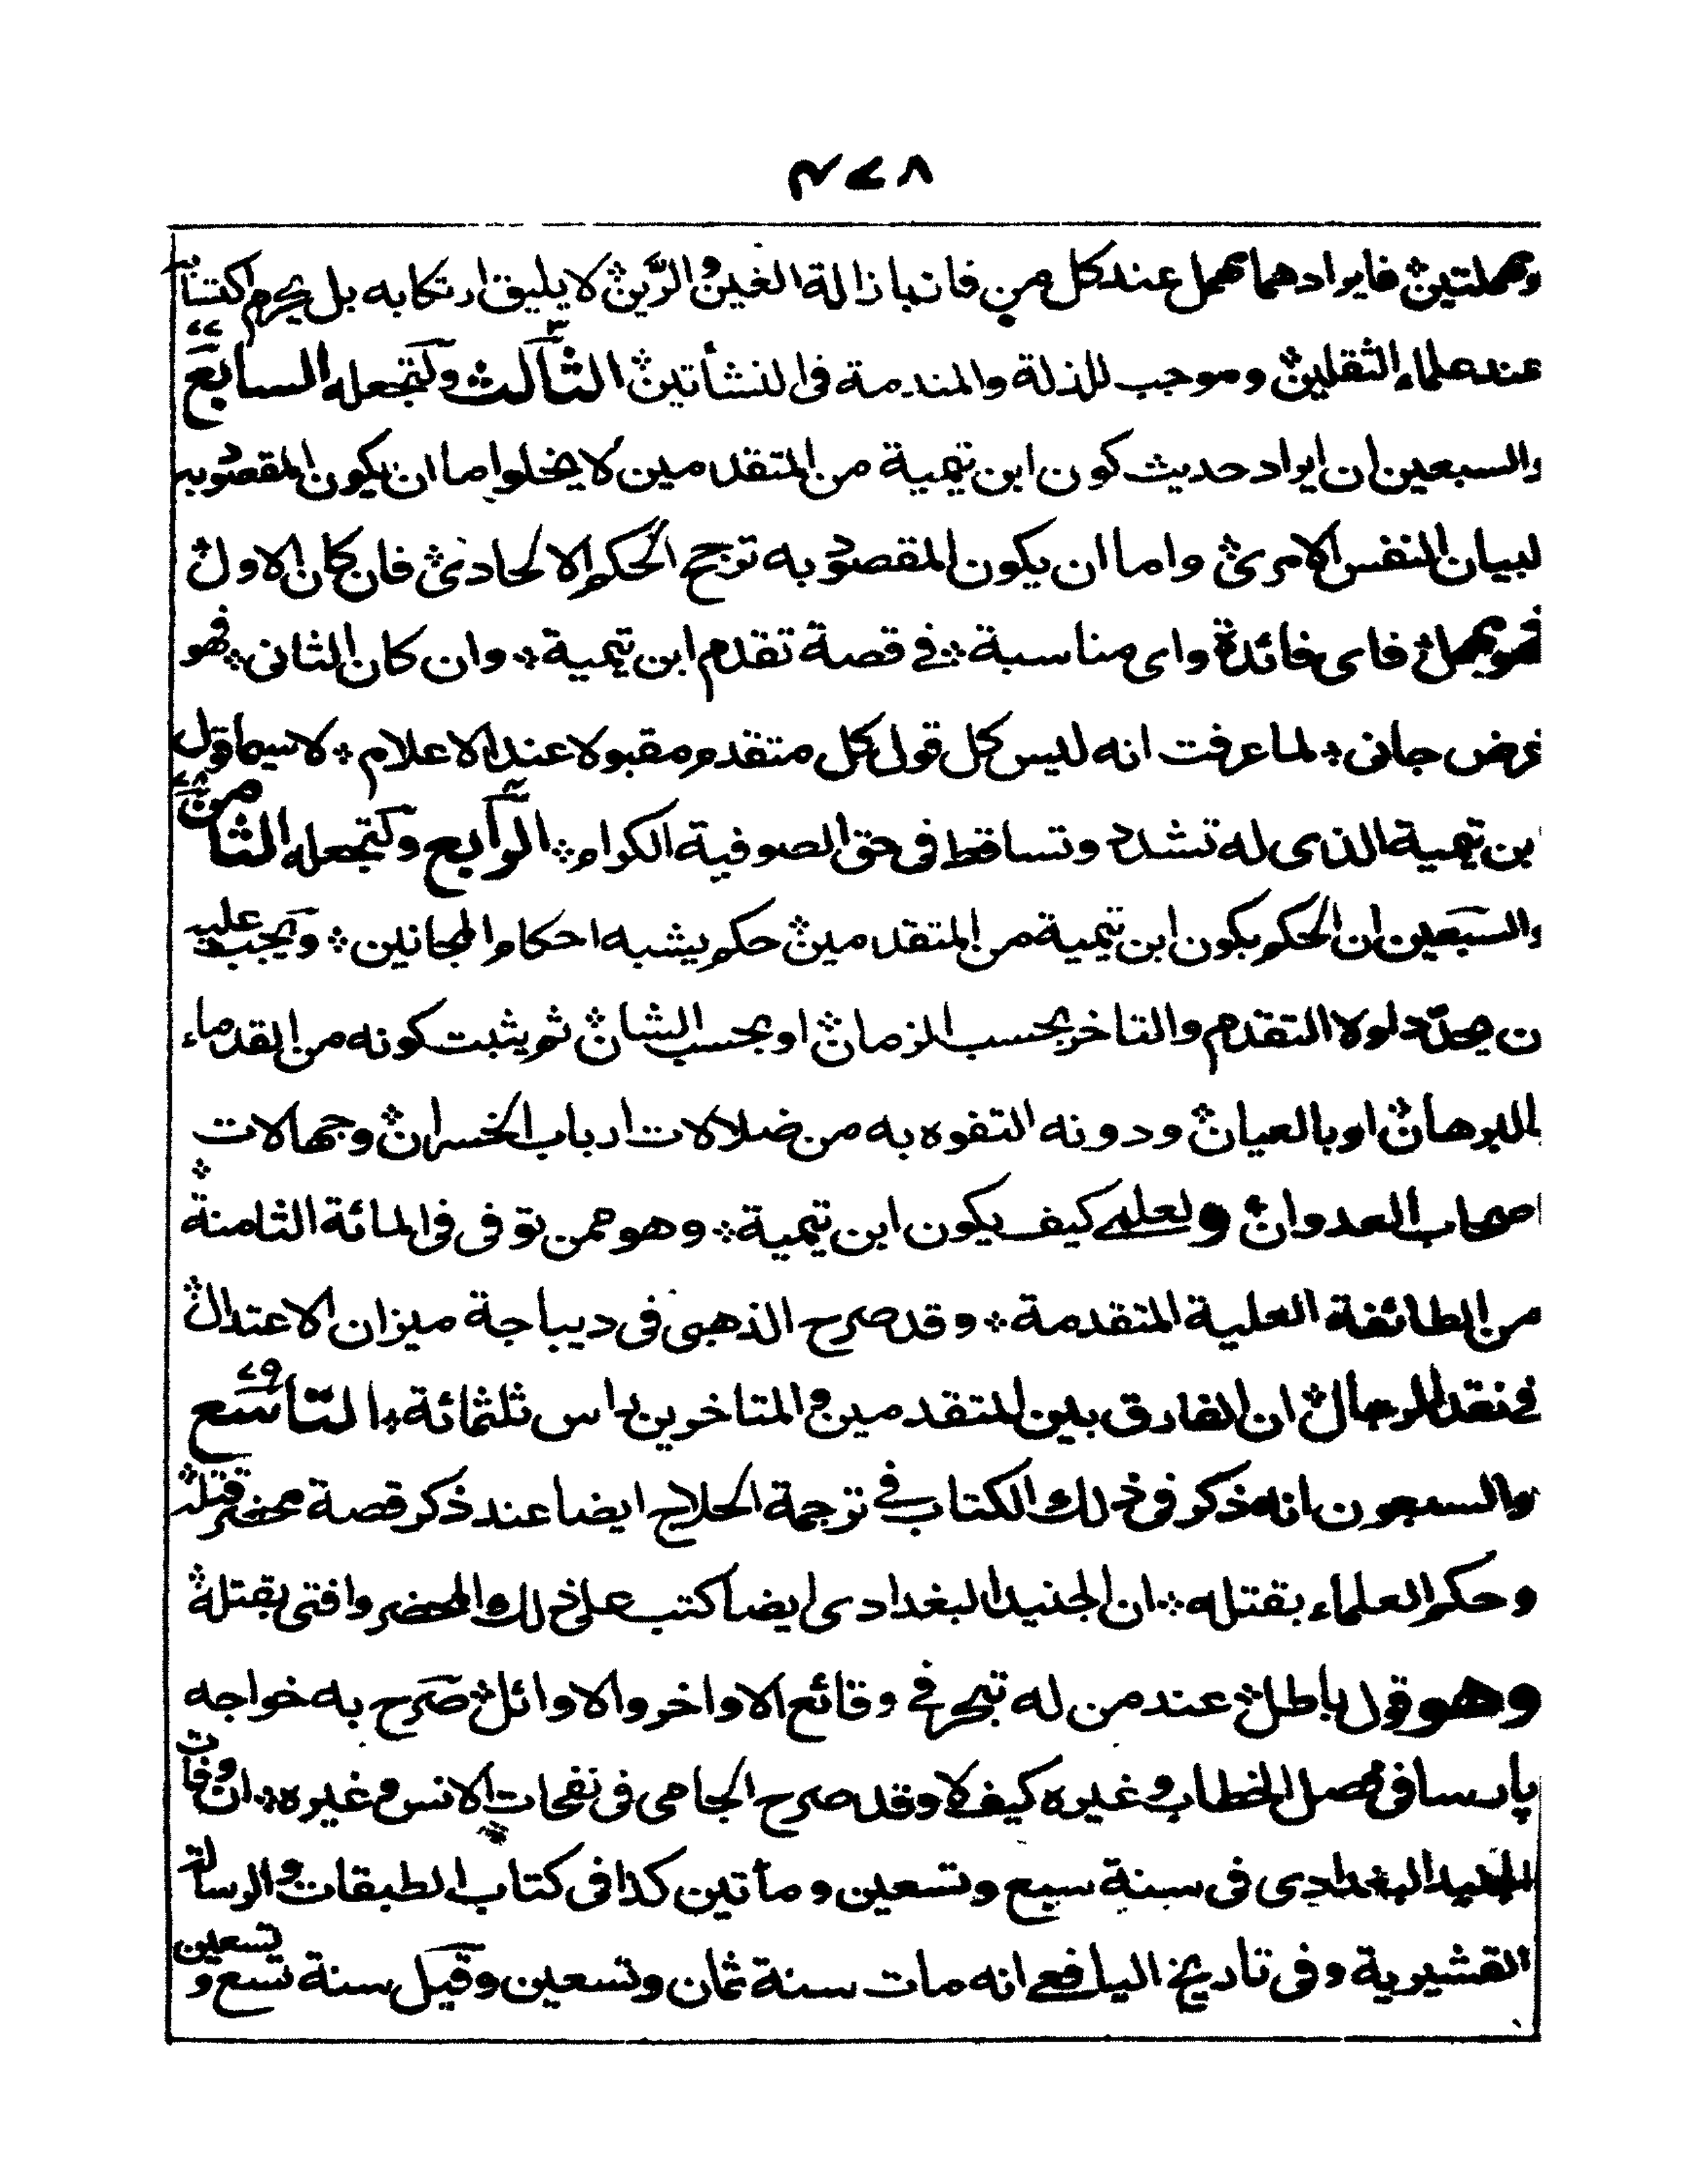 ۴۷۸
ومهملتين فايرادهما مهمل عند كل من فاز بازالة الغين والرين لا يليق ارتكابه بل يحرم اكتسابه
عند علماء الثقلين وموجب للذلة والمندمة فى النشأتين الثالث ولتجعله السابع ۷۷
والسبعين ان ايراد حديث كون ابن تيمية من المتقدمين لا يخلو اما ان يكون المقصود به
لبيان النفس الامرى واما ان يكون المقصود به ترجح الحكم الالحادى فان كان الاول
فهو مهمل فاى فائدة واى مناسبة فى قصة تقدم ابن تيمية وان كان الثانى فهو
غرض جانى لما عرفت انه ليس كل قول كل متقدم مقبولا عند الاعلام لا سيما قول
ابن تيمية الذى له تشدد وتساقط فى حق الصوفية الكرام الرابع ولتجعله الثامن ۷۸
والسبعين ان الحكم بكون ابن تيمية من المتقدمين حكم يشبه احكام المجانين ويجب عليه
ان يحدد اولا التقدم والتاخر بحسب الزمان او بحسب الشان ثم يثبت كونه من القدماء
بالبرهان او بالعيان ودونه التفوه به من ضلالات ارباب الخسران وجهالات
اصحاب العدوان ولعلمى كيف يكون ابن تيمية وهو ممن توفى فى المائة الثامنة
من الطائفة العلية المتقدمة وقد صرح الذهبى فى ديباجة ميزان الاعتدال
فى نقد الرجال ان الفارق بين المتقدمين والمتاخرين راس ثلثمائة التاسع ۷۹
والسبعون انه ذكر فى ذلك الكتاب فى ترجمة الحلاج ايضا عند ذكر قصة محضر قتله
وحكم العلماء بقتله ان الجنيد البغدادى ايضا كتب على ذلك المحضر وافتى بقتله
وهو قول باطل عند من له تبحر فى وقائع الاواخر والاوائل صرح به خواجه
پارسا فى فصل الخطاب وغيره كيف لا وقد صرح الجامى فى نفحات الانس وغيره ان وفات
الجنيد البغدادى فى سنة سبع وتسعين ومأتين كذا فى كتاب الطبقات والرسالة
القشيرية وفى تاريخ اليافعى انه مات سنة ثمان وتسعين وقيل سنة تسع وتسعين